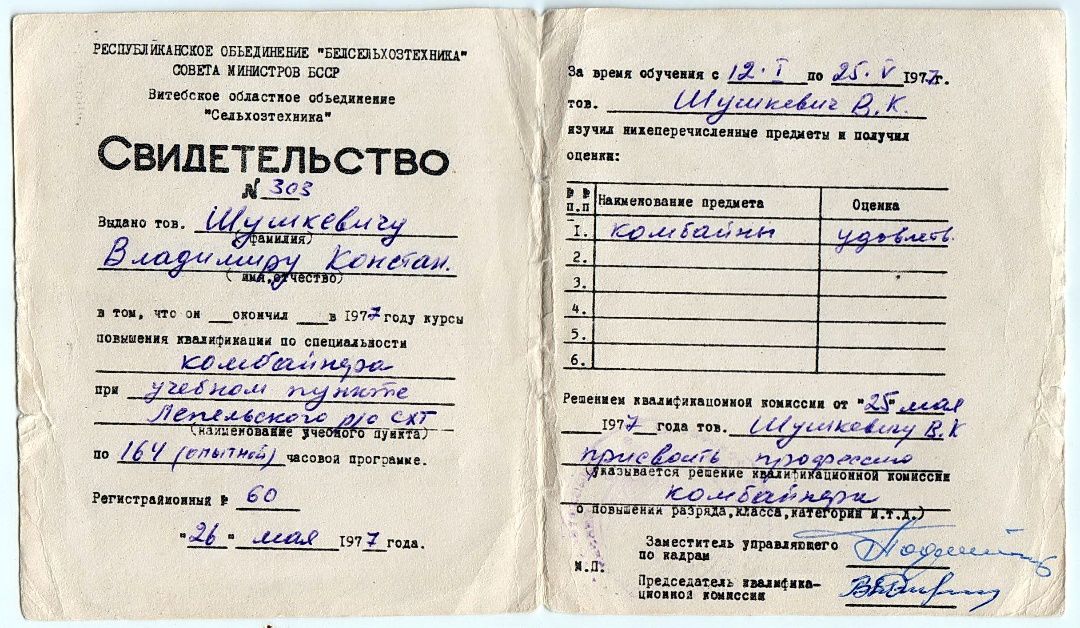 РЕСПУБЛИКАНСКОЕ ОБЪЕДИНЕНИЕ "БЕЛСЕЛЬХОЗТЕХНИКА"
СОВЕТА МИНИСТРОВ БССР
Витебское областное объединение
"Сельхозтехника"
СВИДЕТЕЛЬСТВО
№ 303
Выдано тов. Шушкевичу
(фамилия)
Владимиру Констан.
( имя, отчество)
в том, что он окончил в 1977 году курсы
повышения квалификации по специальности
комбайнера
при учебном пункте
Лепельского р/о СХТ
(наименование учебного пункта)
по 164 (опытной) часовой программе.
Регистрайионный № 60
"26" мая 1977 года.
За время обучения с 12.I по 25.V 1977г.
тов. Шушкевич В.К.
изучил нижеперечисленные предметы и получил
оценки:
№ № п.п Наименование предмета Оценка
1. комбайны удовлетв.
2.
3.
4.
5.
6.
Решением квалификационной комиссии от "25" мая
1977 года тов. Шушкевичу В.К
присвоить профессию
(указывается решение квалификационной комиссии
комбайнера
о повышении разряда, класса, категории и.т.д.)
Заместитель управляющего
по кадрам
М.П.
Председатель квалифика-
ционной комиссии